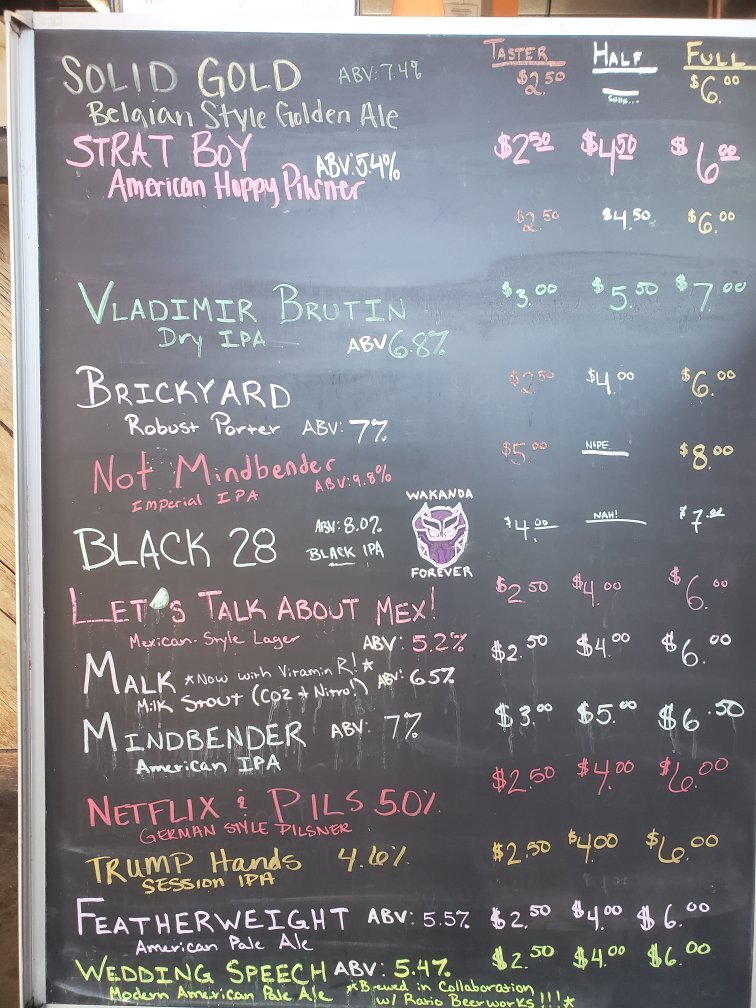 TASTER HALF FULL
SOLID GOLD ABV: 7.4% $2.50 SHHH... $6.00
Belgian Style Golden Ale
STRAT BOY ABV: 5.4% $2.50 $4.50 $6.00
American Hoppy Pilsner
$2.50 $4.50 $6.00
VLADIMIR BRUTIN $3.00 $5.50 $7.00
Dry IPA ABV 6.8%
BRICKYARD $2.50 $4.00 $6.00
Robust Porter ABV: 7%
Not Mindbender ABV: 9.8% $5.00 NOPE. $8.00
Imperial IPA
WAKANDA
BLACK 28 ABV: 8.0% $4.00 NAH! $7.00
BLACK IPA
FOREVER
LET'S TALK ABOUT MEX! $2.50 $4.00 $6.00
Mexican-Style Lager ABV: 5.2%
MALK *Now with Vitamin R!* ABV: 6.5% $2.50 $4.00 $6.00
Milk Stout (CO2 + Nitro!)
MINDBENDER ABV: 7% $3.00 $5.00 $6.50
American IPA
NETFLIX & PILS 5.0% $2.50 $4.00 $6.00
GERMAN STYLE PILSNER
TRUMP Hands 4.6% $2.50 $4.00 $6.00
SESSION IPA
FEATHERWEIGHT ABV: 5.5% $2.50 $4.00 $6.00
American Pale Ale
WEDDING SPEECH ABV: 5.4% $2.50 $4.00 $6.00
Modern American Pale Ale *Brewed in Collaboration
w/ Ratio Beerworks!!!*